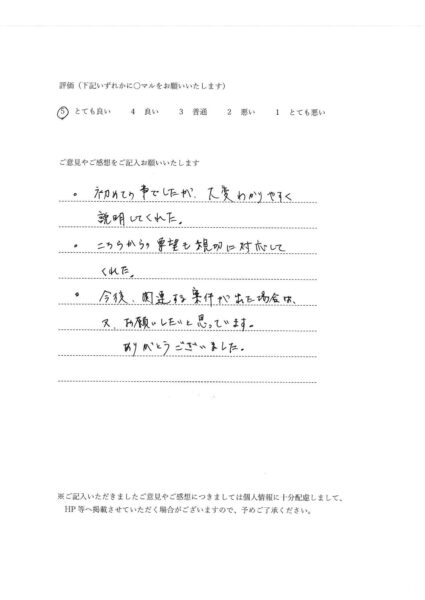 評価（下記いずれかに〇マルをお願いいたします）
⑤ とても良い　4 良い　3 普通　2 悪い　1 とても悪い
ご意見やご感想をご記入お願いいたします
・ 初めての事でしたが、大変わかりやすく
説明してくれた。
・ こちらからの要望も親切に対応して
くれた。
・ 今後、関連する案件が出た場合は、
又、お願いしたいと思っています。
ありがとうございました。
※ご記入いただきましたご意見やご感想につきましては個人情報に十分配慮しまして、
HP 等へ掲載させていただく場合がございますので、予めご了承ください。